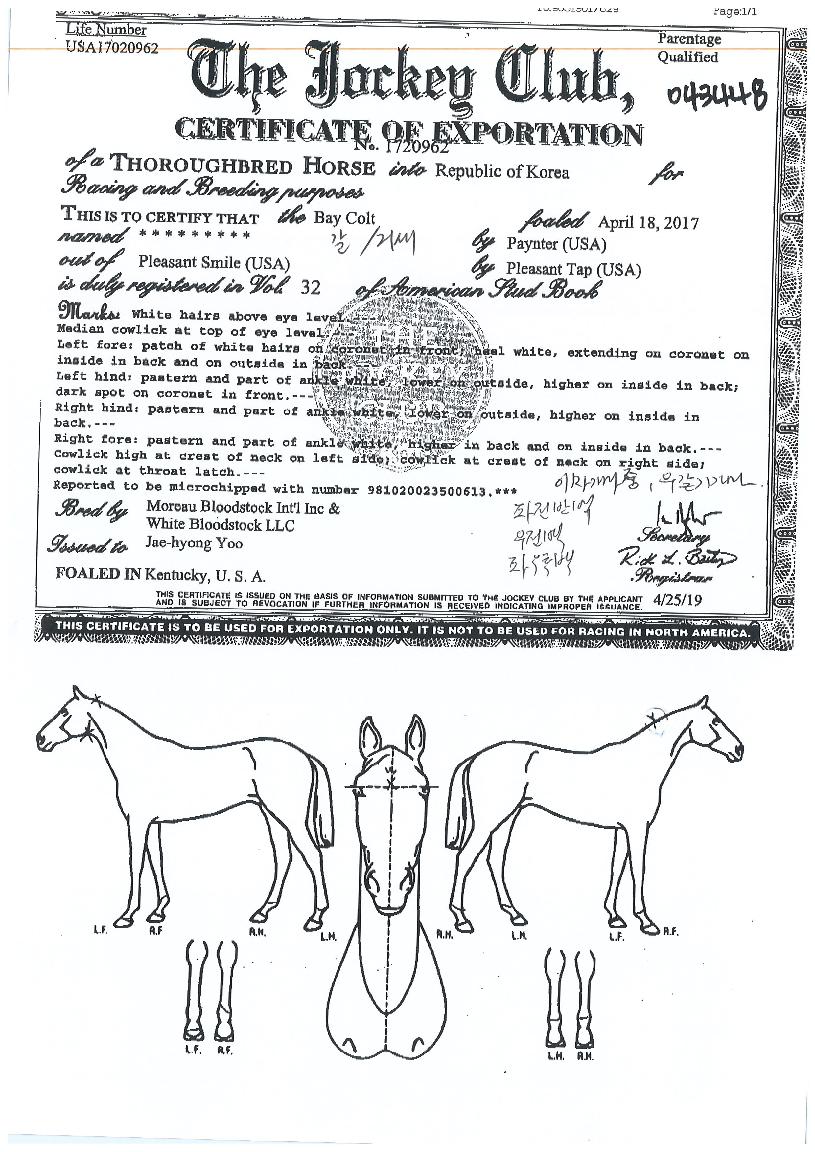 Page:1/1
Life Number
USA17020962
Parentage
Qualified
043448
The Jockey Club,
CERTIFICATE OF EXPORTATION
No. 1720962
of a THOROUGHBRED HORSE into Republic of Korea for
Racing and Breeding purposes
THIS IS TO CERTIFY THAT the Bay Colt foaled April 18, 2017
named * * * * * * * * * by Paynter (USA)
out of Pleasant Smile (USA) by Pleasant Tap (USA)
is duly registered in Vol. 32 of American Stud Book
Marks: White hairs above eye level.---
Median cowlick at top of eye level.---
Left fore: patch of white hairs on coronet in front, heel white, extending on coronet on
inside in back and on outside in back.---
Left hind: pastern and part of ankle white, lower on outside, higher on inside in back;
dark spot on coronet in front.---
Right hind: pastern and part of ankle white, lower on outside, higher on inside in
back.---
Right fore: pastern and part of ankle white, higher in back and on inside in back.---
Cowlick high at crest of neck on left side; cowlick at crest of neck on right side;
cowlick at throat latch.---
Reported to be microchipped with number 981020023500613.***
Bred by Moreau Bloodstock Int'l Inc &
White Bloodstock LLC
Issued to Jae-hyong Yoo
Secretary
Registrar
FOALED IN Kentucky, U. S. A.
THIS CERTIFICATE IS ISSUED ON THE BASIS OF INFORMATION SUBMITTED TO THE JOCKEY CLUB BY THE APPLICANT
AND IS SUBJECT TO REVOCATION IF FURTHER INFORMATION IS RECEIVED INDICATING IMPROPER ISSUANCE. 4/25/19
THIS CERTIFICATE IS TO BE USED FOR EXPORTATION ONLY. IT IS NOT TO BE USED FOR RACING IN NORTH AMERICA.
L.F. R.F R.H. L.H. R.H. L.H. L.F. R.F.
L.F. R.F. L.H. R.H.